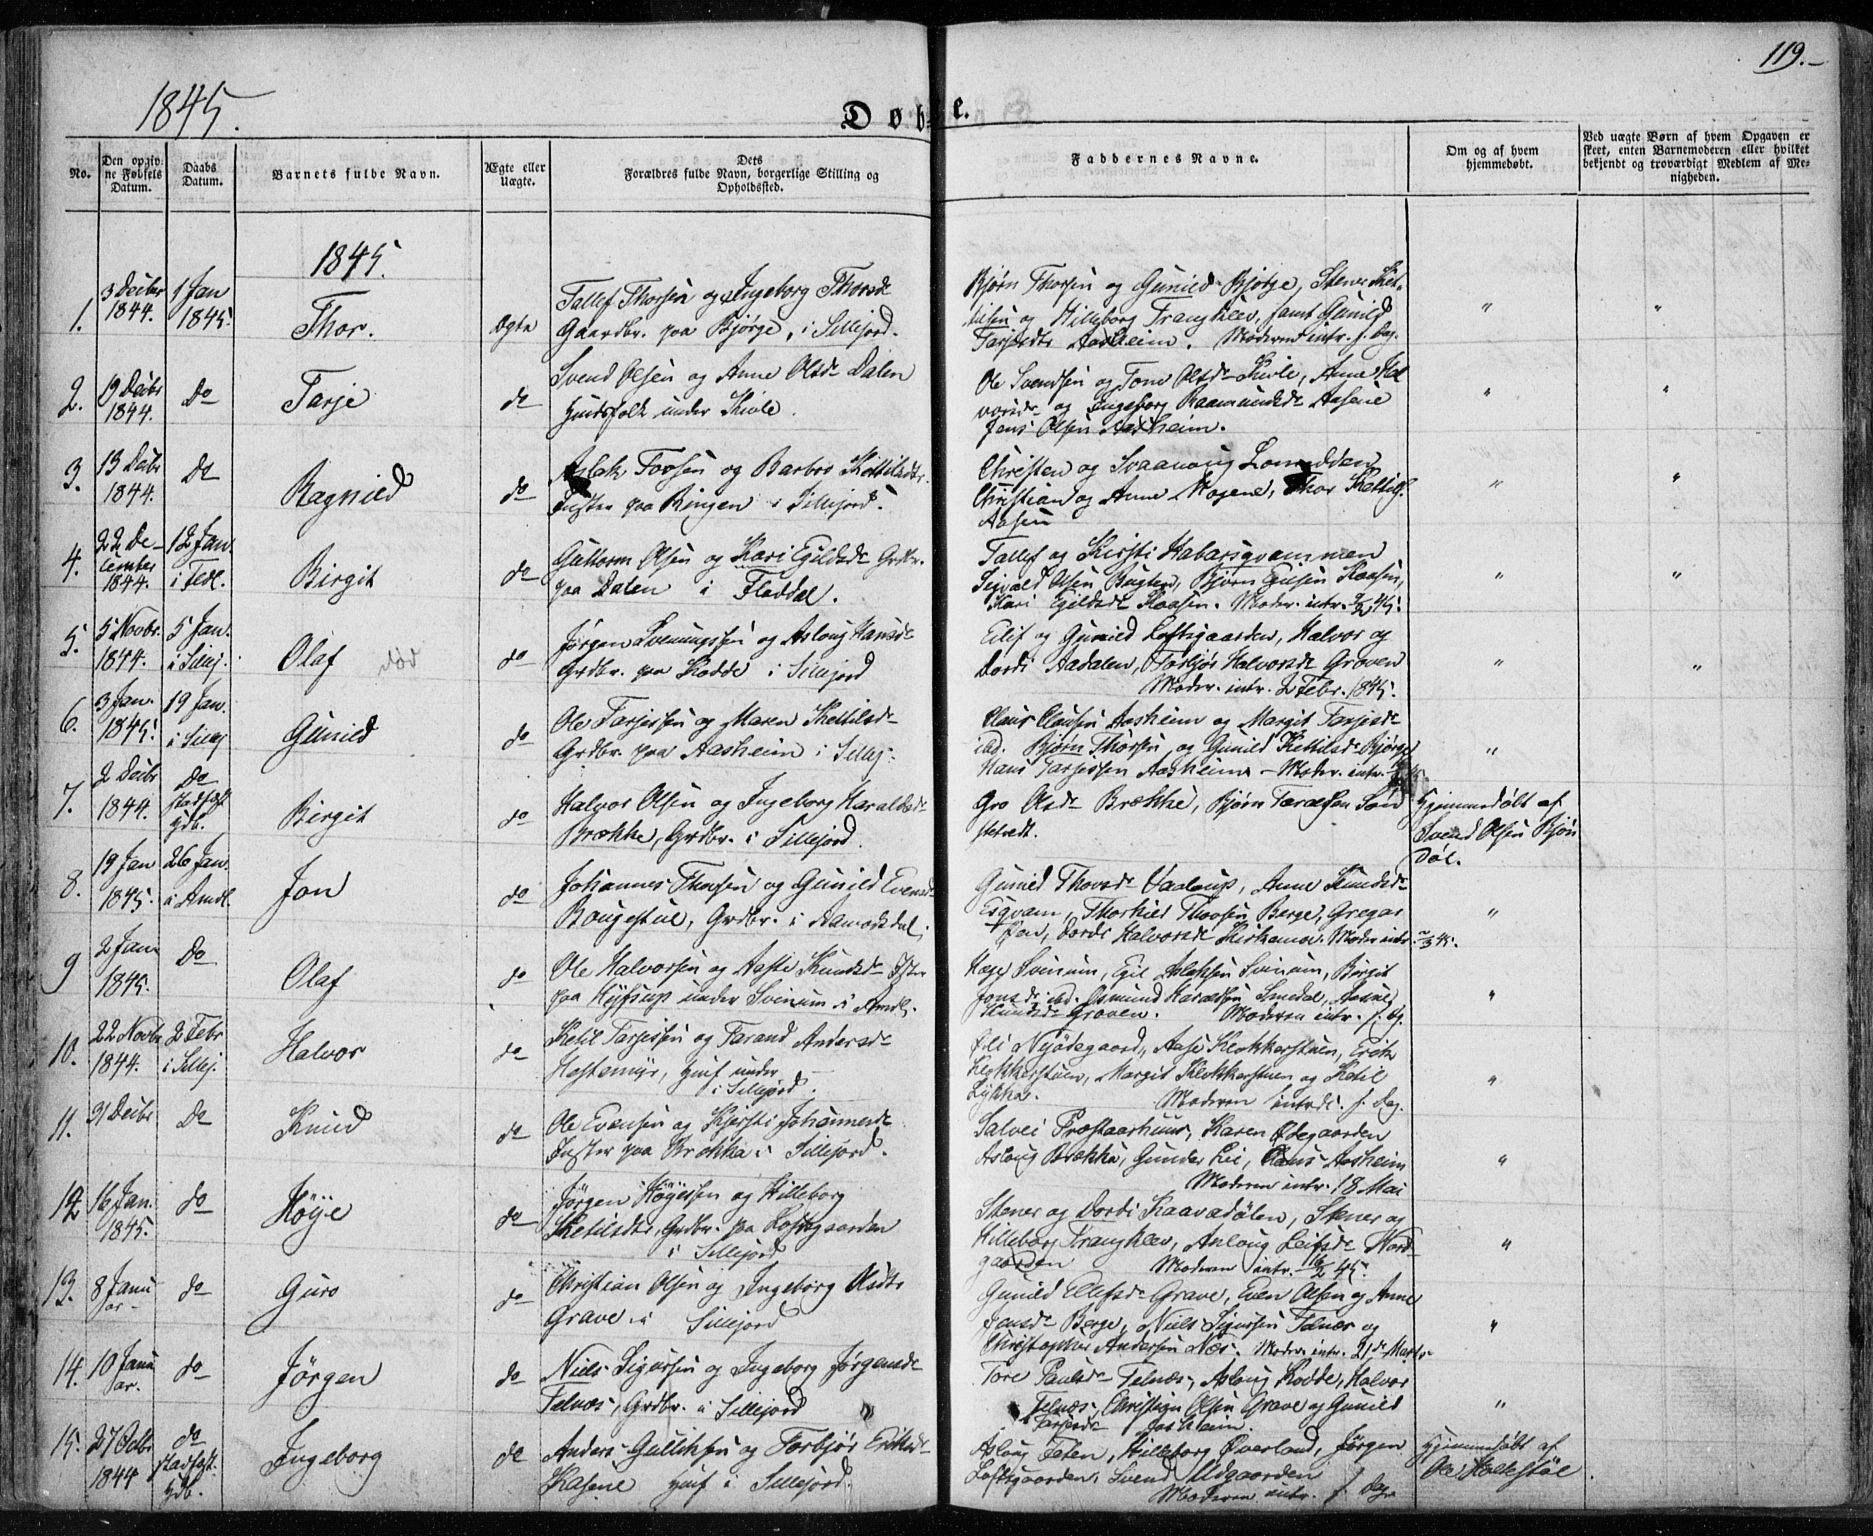 119.
1845.
Døbte.
No.
Den opgivne Fødsels Datum.
Daabs Datum.
Barnets fulde Navn.
Ægte eller Uægte.
Dets Forældres fulde Navn, borgerlige Stilling og Opholdssted.
Faddernes Navne.
Om og af hvem hjemmedøbt.
Ved uægte Børn af hvem Opgaven er skeet, enten Barnemoderen eller hvilket bekjendt og troværdigt Medlem af Menigheden.
1845.
1. 3 Decbr 1844. 1 Jan 1845. Thor. Ægte
Tallef Thorsen og Ingeborg Thorsdr
Gaardbr. paa Bjørge, i Sillejord.
Bjørn Thorsen og Gunild Bjørge, Stener Ket-
tilsen og Hilleborg Trangklev, samt Gunild
Tarjesdtr Aasheim. Moderen intr. s. Dag.
2. 19 Decbr 1844. Do Tarje do
Svend Olsen og Anne Olsdr Dalen
Huusfolk under Kivle.
Ole Svendsen og Tone Olsdr Kivle, Anne Hal
vorsdr og Ingeborg Raamundsdr Aasene
Jens Olsen Aasheim.
3. 13 Decbr 1844. Do Ragnild do
Aslak Tovsen og Barbro Kittilsdtr.
Inster paa Ringen i Sillejord.
Christen og Svaanoug
Christian og Anne Mogene, Thor Kettils.
Aasen
4. 22 De-cember 1844. 12 Jan. i Fldl. Birgit do
Guttorm Olsen og Kari Egilsdr Grdbr.
paa Dalen i Fladdal.
Tallef og Kirsti Habarsqvammen
Sigvald Olsen Bugten, Bjørn Roasen,
Kari Egilsdr Roasen. Moder. intr. 2/2 45.
5. 5 Novbr. 1844. 5 Jan. i Sillej. Olaf død do
Jørgen Svenungsen og Asloug Hansdr
Grdbr. paa Kodde i Sillejord
Eilif og Gunild Loftsgaarden, Halvor og
Dordi Aadalen, Torbjør Halvorsdr Groven
Moder. intr. 2 Febr. 1845.
6. 3 Jan. 1845. 19 Jan. i Sillej Gunild do
Ole Tarjesen og Maren Kettilsdr
Grdbr. paa Aasheim i Sillej.
Claus Clausen Aasheim og Margit Tarjesdr
ibd. Bjørn Thorsen og Gunild Kettilsdr Bjørge
Hans Tarjesen Aasheim. Moder. intr.
7. 2 Decbr 1844. do stadfæst Hdb. Birgit do
Halvor Olsen og Ingeborg Haraldsdr
Brække, Grdbr. i Sillejord.
Gro Olsdr Brække, Bjørn Taraldsen Sønd
stvedt.
Hjemmedøbt af
Svend Olsen Bjøn
døl.
8. 19 Jan 1845. 26 Jan. i Amdl. Jon do
Johannes Thovsen og Gunild Evensdr
Bougestul, Grdbr. i Aamotsdal.
Gunild Thovsdr Vaaloup, Anne Knudsdr
Esqvam, Thorkild Thovsen Berge, Gregar
Øen, Dordi Halvorsdr Kirkemoe. Moder intr. 45.
9 2 Jan 1845. Do Olaf do
Ole Halvorsen og Aaste Knudsdr
paa under Svinum i Amdl.
Hæge Svinum, Egil Aslaksen Svinum, Birgit
Jonsdr ibd. Osmund Haraldsen Smedal, Aasne
Knudsdr Groven. Moderen intr. s. Dg.
10. 22 Novbr 1844. 2 Febr i Sillej. Halvor do
Ketil Tarjesen og Tarand Andersdr
Hestemyr, Huusf under
i Sillejord.
Øli Nyødegaard, Aase Klokkerstuen, Erik
Klokkerstuen, Margit Klokkerstuen og Ketil
Lykkja. Moderen introd. s. Dag.
11. 31 Decbr do Knud do
Ole Evensen og Kjersti Johannesdr
Inster paa Brække i Sillejord.
Salvei Præstaarhuus, Karen Ødegaarden
Asloug Brække, Gunder Lie, Claus Aasheim
Moderen intr. 18 Mai
12 16 Jan. 1845. do Höÿe do
Jørgen Höÿesen og Hilleborg
Ketilsdtr, Grdbr. paa Loftsgaarden
i Sillejord
Stener og Dordi Kaavadølen, Stener og
Hilleborg Trangklev, Asloug Leifsdr Nord-
gaarden Moderen intr. 16/2 45.
13. 8 Januar- do Guro do
Christian Olsen og Ingeborg Olsdtr
Grave i Sillejord
Gunild Ellefsdr Grave, Even Olsen og Anne
Jensdr Berge, Niels Sigursen Telnes og
Christopher Andersen Næs. Moder. intr. 21de Marts.
14. 10 Januar. do Jörgen do
Niels Sigursen og Ingeborg Jørgensdr
Telnæs, Grdbr. i Sillejord
Tore Paulsdr Telnæs, Asloug Kodde, Halvor
Telnæs, Christian Olsen Grave og Gunild
Tarjesdr Aasheim.
15. 27 Octbr 1844 do stadfæst. Hdb. Ingeborg do
Anders Gulliksen og Torbjör Eriksdr
Hasene Huusf i Sillejord.
Asloug Teten, Hilleborg Øverland, Jörgen
Loftsgaarden, Svend Udgaarden
Moderen intr. s. Dag
Hjemmedøbt af
Ole Holtestöl.